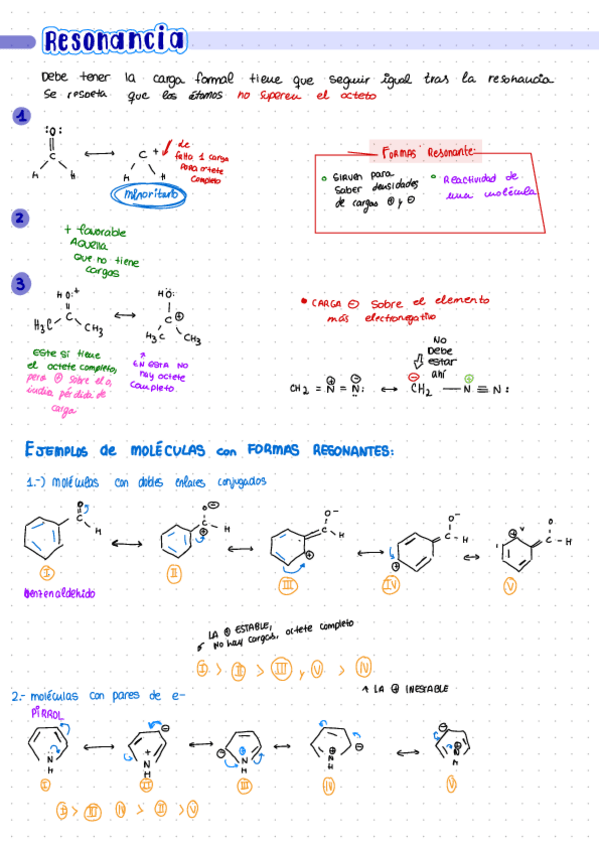 Resonancia
Debe tener la carga formal tiene que seguir igual tras la resonancia
Se respeta que los átomos no superen el octeto
1
:O:
C
H H
C +
H H
minoritario
de
falta 1 carga
para octete
completo
FORMAS Resonante:
Sirven para
saber densidades
de cargas ⊕ y ⊖
Reactividad de
una molécula
2
+ favorable
AQUELLA
que no tiene
cargos
3
HO:+
C
H3C CH3
HÖ:
C ⊕
H3C CH3
ESTE SÍ tiene
el octete completo,
pero ⊕ sobre el O,
indica pérdida de
carga
EN ESTA NO
hay octete
completo.
CARGA ⊖ sobre el elemento
más electronegativo
NO
Debe
estar
ahí
CH2 = N = N: ↔ CH2 — N ≡ N:
EJEMPLOS de MOLÉCULAS con FORMAS RESONANTES:
1.-) moléculas con dobles enlaces conjugados
I II III IV V
benzenaldehido
LA ⊕ ESTABLE,
No hay cargas, octete completo
I > II > III, V > IV
↑ LA ⊕ INESTABLE
2.- moléculas con pares de e-
PIRROL
I II III IV V
I > III IV > II > V